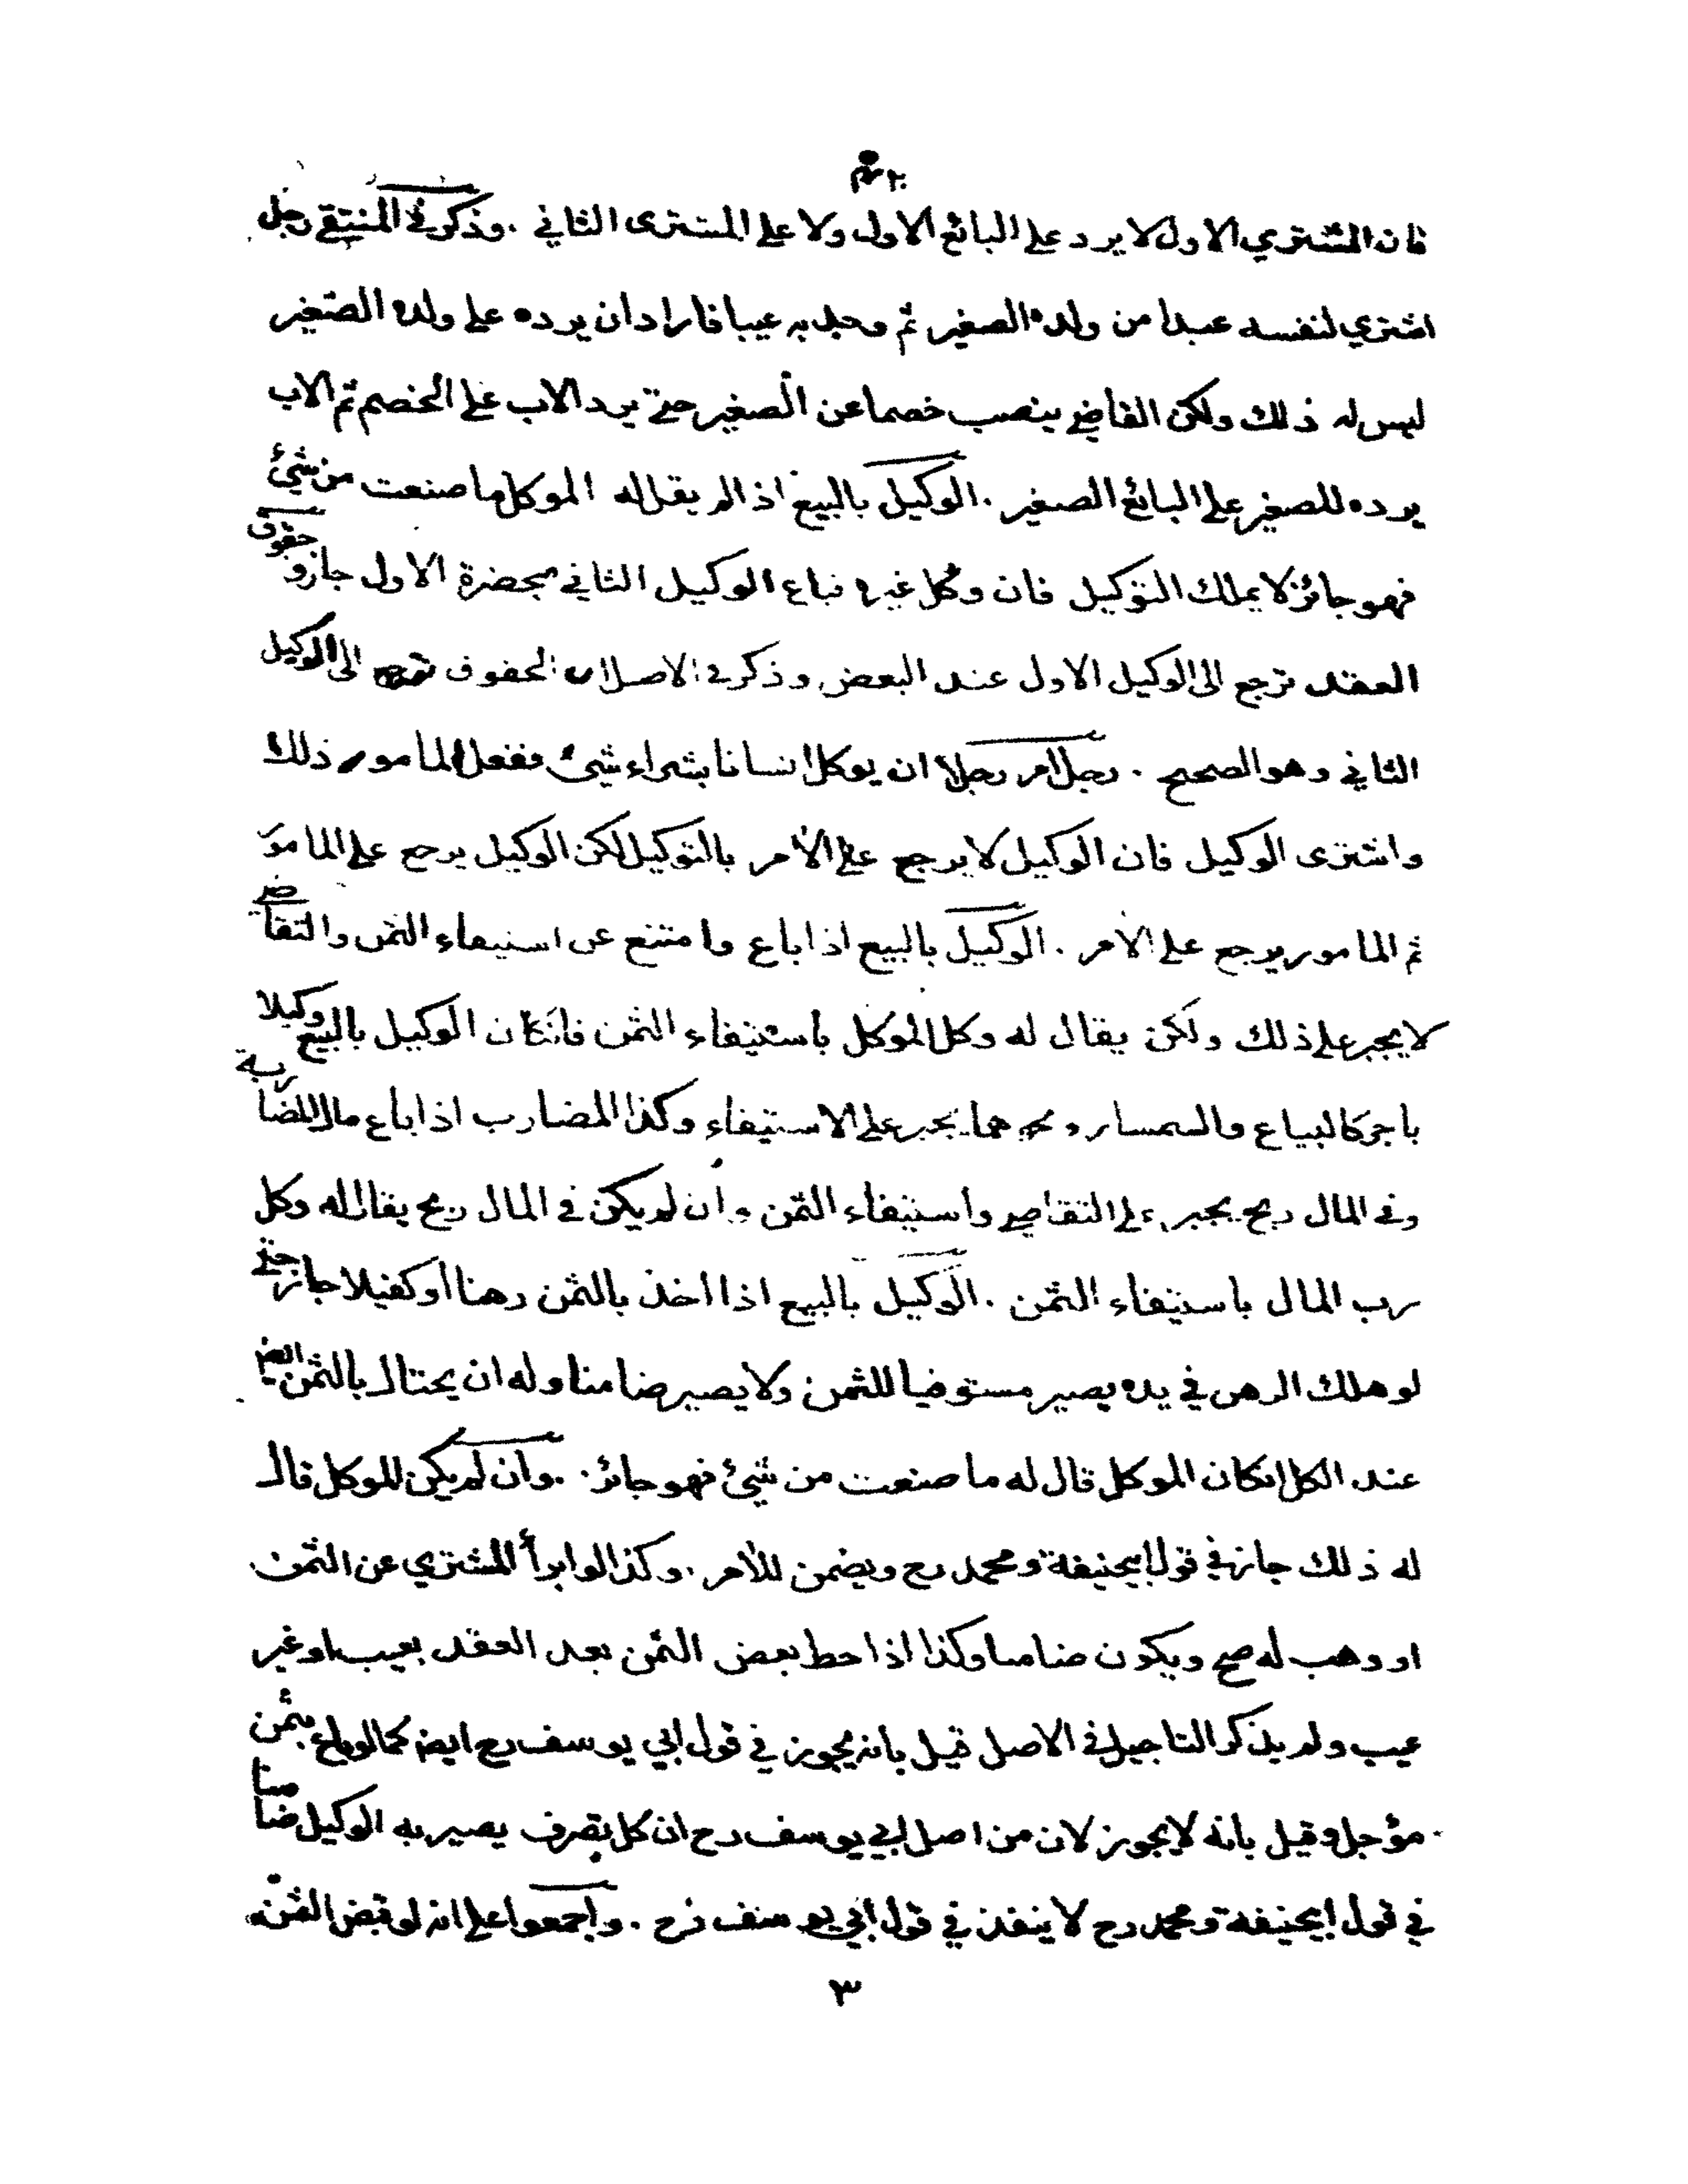 فان المشتري الاول لا يرد على البائع الاول ولا على المشترى الثاني . وذكر في المنتقى رجل
اشتري لنفسه عبدا من ولده الصغير ثم وجد به عيبا فاراد ان يرده على ولده الصغير
ليس له ذلك ولكن القاضي ينصب خصما عن الصغير حتى يرد الاب على الخصم ثم الاب
يرده للصغير على البائع الصغير . الوكيل بالبيع اذا لم يقل له الموكل ما صنعت من شيئ
فهو جائز لا يملك التوكيل فان وكل غيره فباع الوكيل الثاني بحضرة الاول جاز و حقوق
العقد ترجع الى الوكيل الاول عند البعض وذكر في الاصل ان الحقوق ترجع الى الوكيل
الثاني وهو الصحيح . رجل امر رجلا ان يوكل انسانا بشراء شيئ ففعل المامور ذلك
واشترى الوكيل فان الوكيل لا يرجع على الأمر بالتوكيل لكن الوكيل يرجع على المامو
ثم المامور يرجع على الأمر . الوكيل بالبيع اذا باع وامتنع عن استيفاء الثمن والتقاضي
لا يجبر على ذلك ولكن يقال له وكل الموكل باستيفاء الثمن فانكان الوكيل بالبيع وكيلا
باجر كالبياع والسمسار و يجبر على الاستيفاء وكذا المضارب اذا باع مال المضاربة
وفي المال ربح يجبر على التقاضي واستيفاء الثمن وان لم يكن في المال ربح يقال له وكل
رب المال باستيفاء الثمن . الوكيل بالبيع اذا اخذ بالثمن رهنا او كفيلا جاز حتى
لو هلك الرهن في يده يصير مستوفيا للثمن ولا يصير ضامنا وله ان يحتال بالثمن ايضا
عند الكل انكان الموكل قال له ما صنعت من شيئ فهو جائز . وان لم يكن للموكل قال
له ذلك جاز في قول ابيحنيفة ومحمد رح ويضمن للأمر . وكذا لو ابرأ المشتري عن الثمن
او وهب له صح ويكون ضامنا وكذا اذا حط بعض الثمن بعد العقد بعيب او غير
عيب ولم يذكر التاجيل في الاصل قيل بانه يجوز في قول ابي يوسف رح ايضا كما لو باع بثمن
مؤجل وقيل بانه لا يجوز لان من اصل ابي يوسف رح ان كل تصرف يصير به الوكيل ضامنا
في قول ابيحنيفة ومحمد رح لا ينفذ في قول ابي يوسف رح . واجمعوا على انه لو قبض الثمن
٣